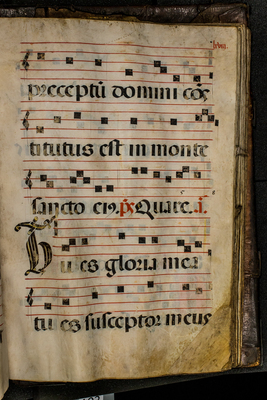 preceptū domini cōs
titutus est in monte
sancto ei9. ps Quare. a.
Tu es gloria mea
tu es susceptor meus